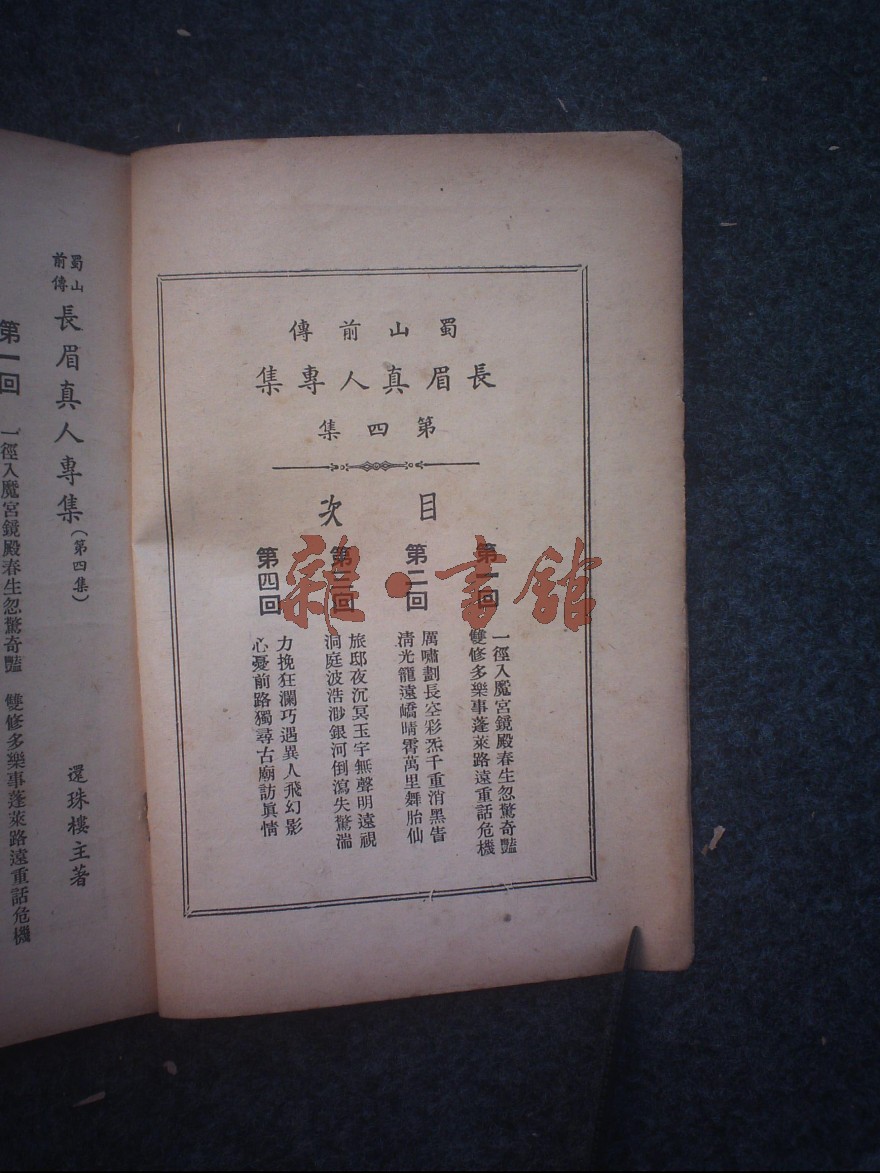 蜀山前傳
長眉真人專集
第四集
目次
第一回
一徑入魔宮鏡殿春生忽驚奇豔
雙修多樂事蓬萊路遠重話危機
第二回
厲嘯劃長空彩炁千重消黑眚
清光籠遠嶠晴霄萬里舞胎仙
第三回
旅邸夜沉冥玉宇無聲明遠視
洞庭波浩渺銀河倒瀉失驚湍
第四回
力挽狂瀾巧遇異人飛幻影
心憂前路獨尋古廟訪眞情
雜·書館
蜀山前傳 長眉真人專集(第四集)
還珠樓主著
第一回 一徑入魔宮鏡殿春生忽驚奇豔 雙修多樂事蓬萊路遠重話危機